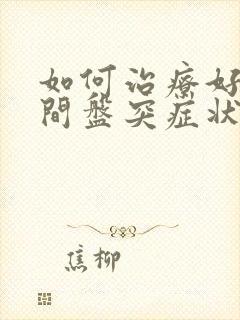 如何治療好
間盤突症狀
焦柳